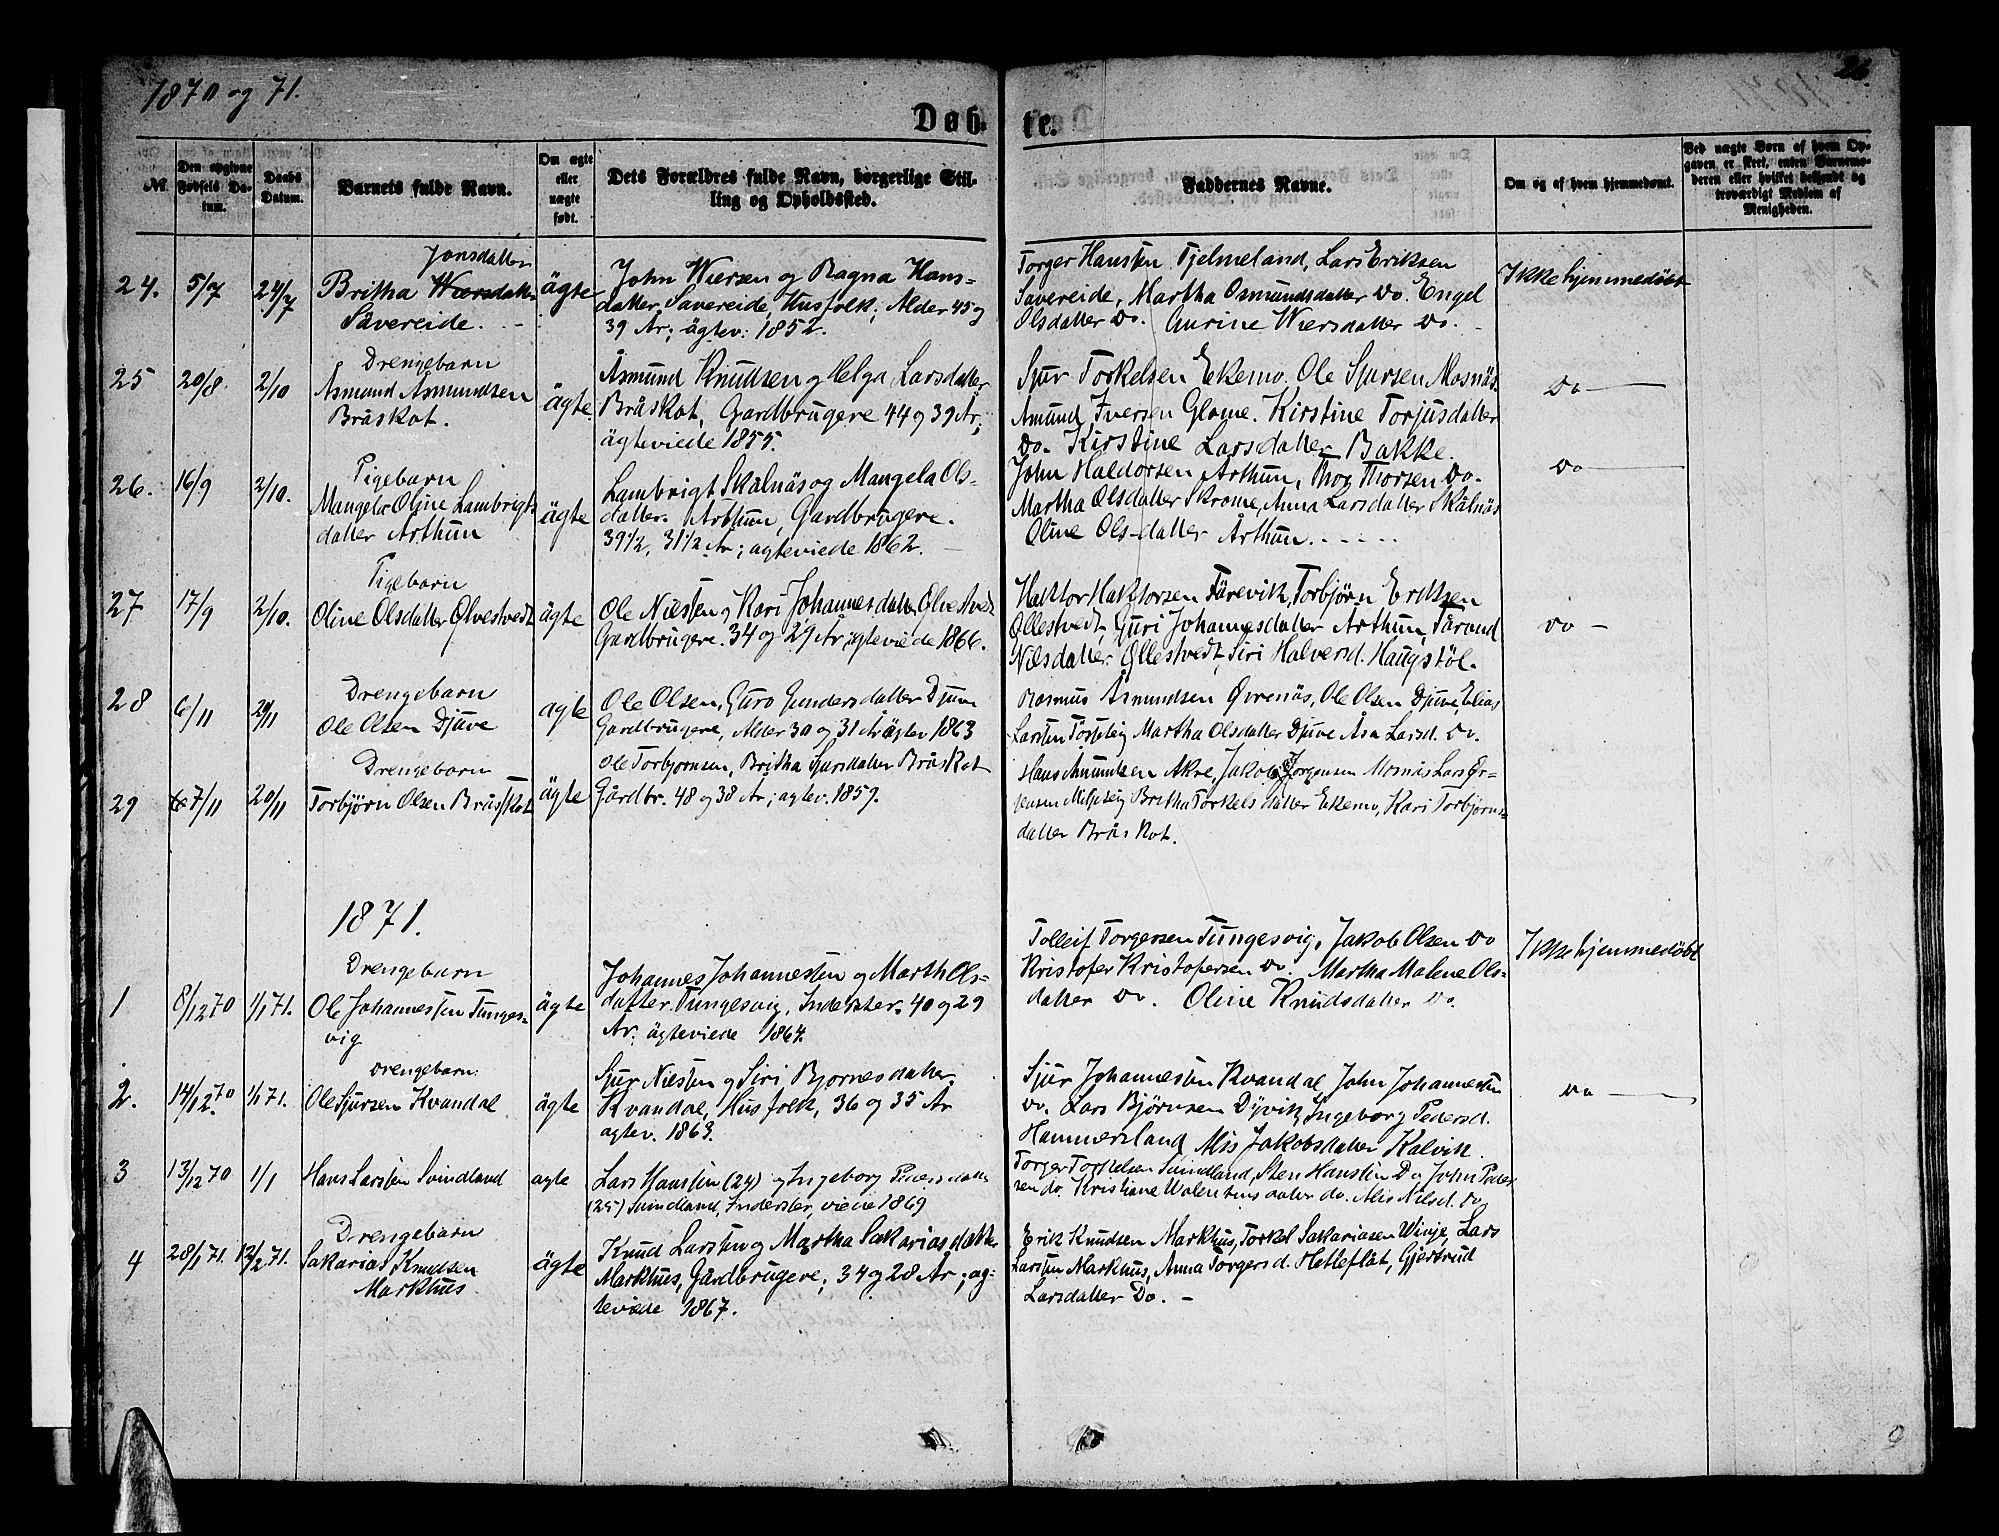 1870 og 71.
26
Døb-
te.
№.
Den opgivne Fødsels Datum.
Daabs Datum.
Barnets fulde Navn.
Om ægte eller uægte født.
Dets Forældres fulde Navn, borgerlige Stilling og Opholdssted.
Faddernes Navne.
Om og af hvem hjemmedøbt.
Ved uægte Børn af hvem Opgaven er skeet, enten Barnemoderen eller hvilket bekjendt og troværdigt Medlem af Menigheden.
24. 5/7 24/7
Jonsdatter
Britha Wiersdatter
Såvereide.
ägte
John Wiersen og Ragna Hans-
datter Såvereide, Husfolk; Alder 45 og
39 År; ägtev: 1852.
Torger Hansen Tjelmeland, Lars Eriksen
Såvereide, Martha Osmundsdatter do. Engel
Olsdatter do. Aurine Wiersdatter do.
Ikke hjemmedöbt
25 20/8. 2/10
Drengebarn
Åsmund Åsmundsen
Bråskot.
ägte
Åsmund Knudsen og Helga Larsdatter
Bråskot, Gardbrugere 44 og 39 År;
ägteviede 1855.
Sjur Torkelsen Ekemo, Ole Sjursen Mosnäs
Amund Iversen Glome. Kirstine Torjusdatter
do. Kirstine Larsdatter Bakke.
do
26. 16/9 2/10.
Pigebarn
Mangela Oline Lambrigts
datter Arthun
ägte
Lambrigt Skålnäs og Mangela Ols-
datter. Arthun, Gardbrugere.
39 1/2, 31 1/2 År; ägteviede 1862.
John Haldorsen Arthun, Thor Thorsen do.
Martha Olsdatter Skrome, Anna Larsdatter Skålnäs
Oline Ols-datter Årthun.
do
27 17/9 2/10.
Pigebarn
Oline Olsdatter Ølvestvedt
ägte
Ole Nilsen og Kari Johannesdatter Ølvestvedt
Gardbrugere. 34 og 29 År; ägteviede 1866.
Haktor Haktorsen Färevik, Torbjörn Eriksen
Øllestvedt, Guri Johannesdatter Arthun, Tårand
Nilsdatter Øllestvedt, Siri Halversd. Haugstöl.
do
28 6/11 20/11
Drengebarn
Ole Olsen Djuve
ägte
Ole Olsen, Guro Gundersdatter Djuve
Gardbrugere, Alder 30 og 31 År ägtev 1863
Rasmus Åsmundsen Øvrenäs, Ole Olsen Djuve, Elias
Larsen Martha Olsdatter Djuve Åsa Larsd. do.
29 7/11 20/11
Drengebarn
Torbjörn Olsen Bråskot
ägte
Ole Torbjornsen, Britha Sjursdatter Bråskot
Gårdbr. 48 og 38 År; ägtev. 1859.
Hans Amundsen Akre, Jakob Jorgensen Mosnäs Lars Ør-
jensen Britha Torkelsdatter Ekemo, Kari Torbjörns-
datter Bråskot.
1871.
1 8/12 70 1/1 71.
Drengebarn
Ole Johannesen Tunges-
vig
ägte
Johannes Johannesen og Marth Ols-
datter Tungesvig, Inderster. 40 og 29
År; ägteviede 1864.
Tolleif Torgersen Tungesvig, Jakob Olsen do
Kristofer Kristofersen do. Martha Malene Ols-
datter do. Oline Knudsdatter do.
Ikke hjemmedöbt
2. 14/12 70 1/1 71.
Drengebarn:
Ole Sjursen Kvandal
ägte
Sjur Nilsen og Siri Bjornesdatter
Kvandal, Husfolk, 36 og 35 År
agtev. 1863.
Sjur Johannesen Kvandal, John Johannesen
do. Lars Björnsen Dyvik, Ingeborg Pedersd.
Hammersland Alis Jakobsdatter Kalvik.
do
3 13/12 70 1/1
Hans Larsen Svindland
agte
Lars Hansen (24) og Ingeborg Pedersdatter
(25) Svindland, Inderster, viede 1869
Torger Torkelsen Svindland, Sten Hansen Do John Peder
sen do. Kristiane Walentinsdatter do. Alis Nilsd. do
4 28/1 71. 12/2 71.
Drengebarn
Sakarias Knudsen
Markhus
ägte
Knud Larsen og Martha Sakariasdatter
Markhus, Gårdbrugere; 34 og 28 År; äg-
teviede 1867.
Erik Knudsen Markhus, Torkel Sakariasen Winje, Lars
Larsen Markhus, Anna Torgersd. Hetleflåt, Gjertrud
Larsdatter Do. -